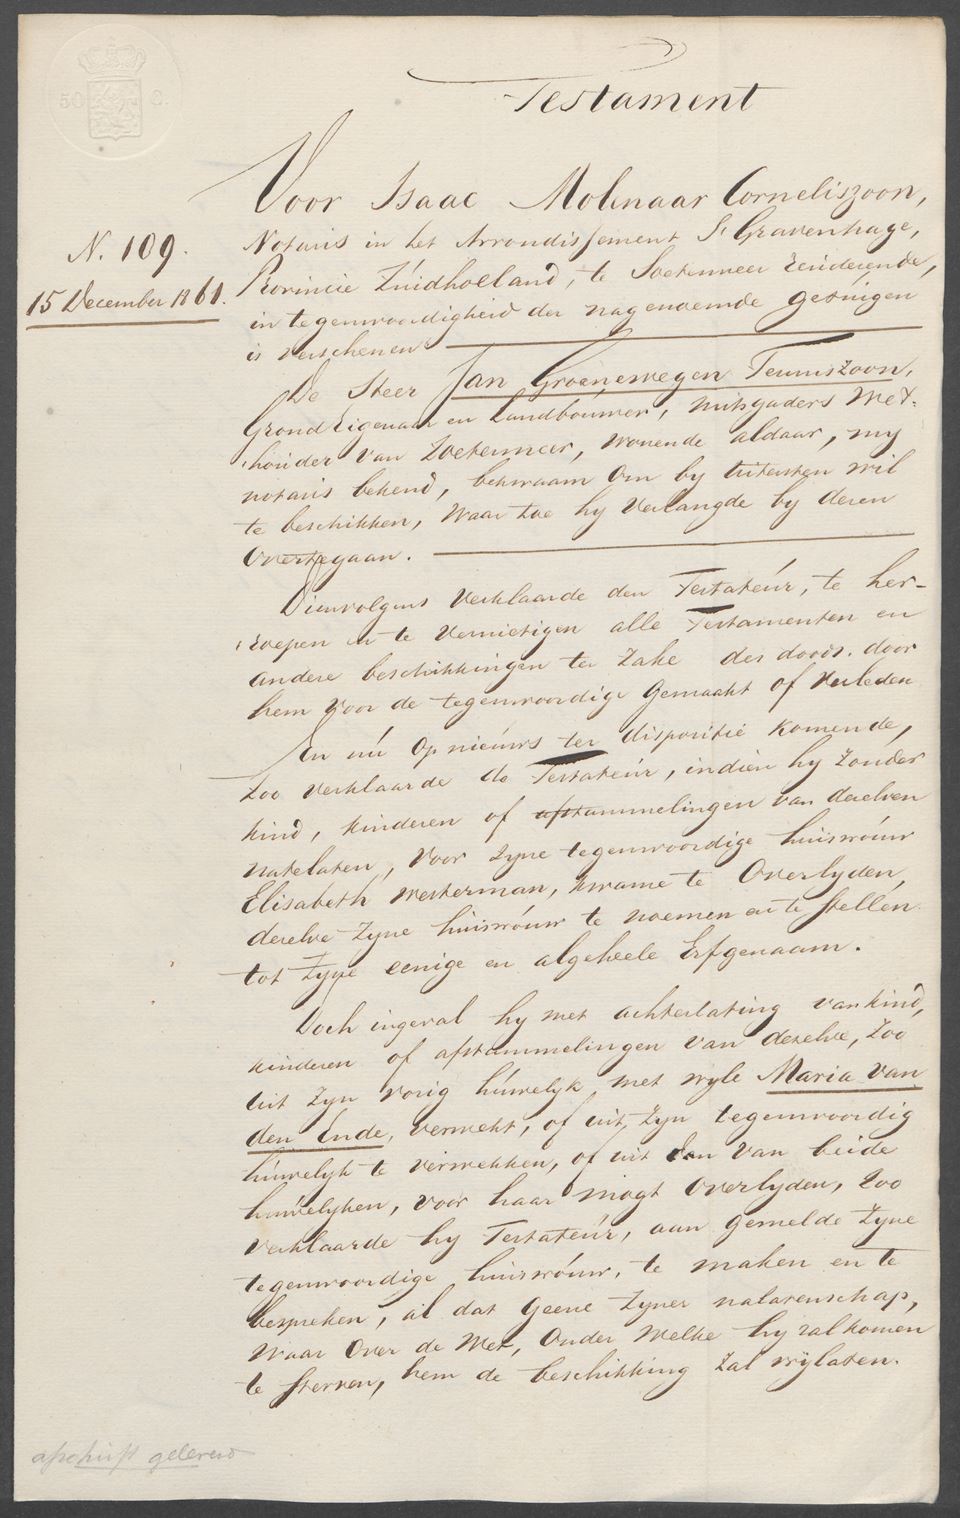 50 C.
Testament
N. 109.
15 December 1861.
Voor Isaac Molenaar Corneliszoon,
Notaris in het Arrondissement S' Gravenhage,
Provincie Zuidholland, te Soetermeer residerende,
in tegenwoordigheid der nagenoemde getuigen
is verschenen
De Heer Jan Groenewegen Teuniszoon,
Grond Eigenaar en Landbouwer, mitsgaders Wet-
houder van Zoetermeer, wonende aldaar, my
notaris bekend, bekwaam om by uitersten wil
te beschikken, waar toe hy verlangde by deren
overtegaan.
Dienvolgens verklaarde den Testateur, te her-
roepen en te vernietigen alle Testamenten en
andere beschikkingen ter zake des doods door
hem voor de tegenwoordige gemaakt of verleden
En nu op nieuws ter dispositie komende,
Zoo verklaarde de Testateur, indien hy zonder
kind, kinderen of afstammelingen van deselven
natelaten, voor zyne tegenwoordige huisvrouw
Elisabeth Westerman, kwame te overlyden,
deselve zyne huisvrouw te noemen en te stellen
tot zyne eenige en algeheele Erfgenaam.
Doch ingeval hy met achterlating van kind,
kinderen of afstammelingen van deselve, zoo
uit zyn vorig huwelyk met wyle Maria van
den Ende, verwekt, of uit zyn tegenwoordig
huwelyk te verwekken, of uit een van beide
huwelyken, voor haar mogt overlyden, zoo
verklaarde hy Testateur, aan gemelde zyne
tegenwoordige huisvrouw, te maken en te
bespreken, al dat geene zyner nalatenschap,
waar over de Wet, onder welke hy zal komen
te sterven, hem de beschikking zal vrylaten.
afschrift geleverd